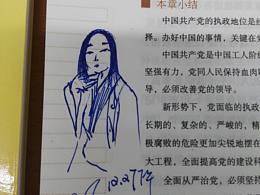 本章小结
中国共产党的执政地位是
择。办好中国的事情，关键在
中国共产党是中国工人阶
坚强有力，党同人民保持血肉
导，必须改善党的领导。
新形势下，党面临的执政
长期的、复杂的、严峻的，精
极腐败的危险更加尖锐地摆在
大工程，全面提高党的建设科
全面从严治党，必须